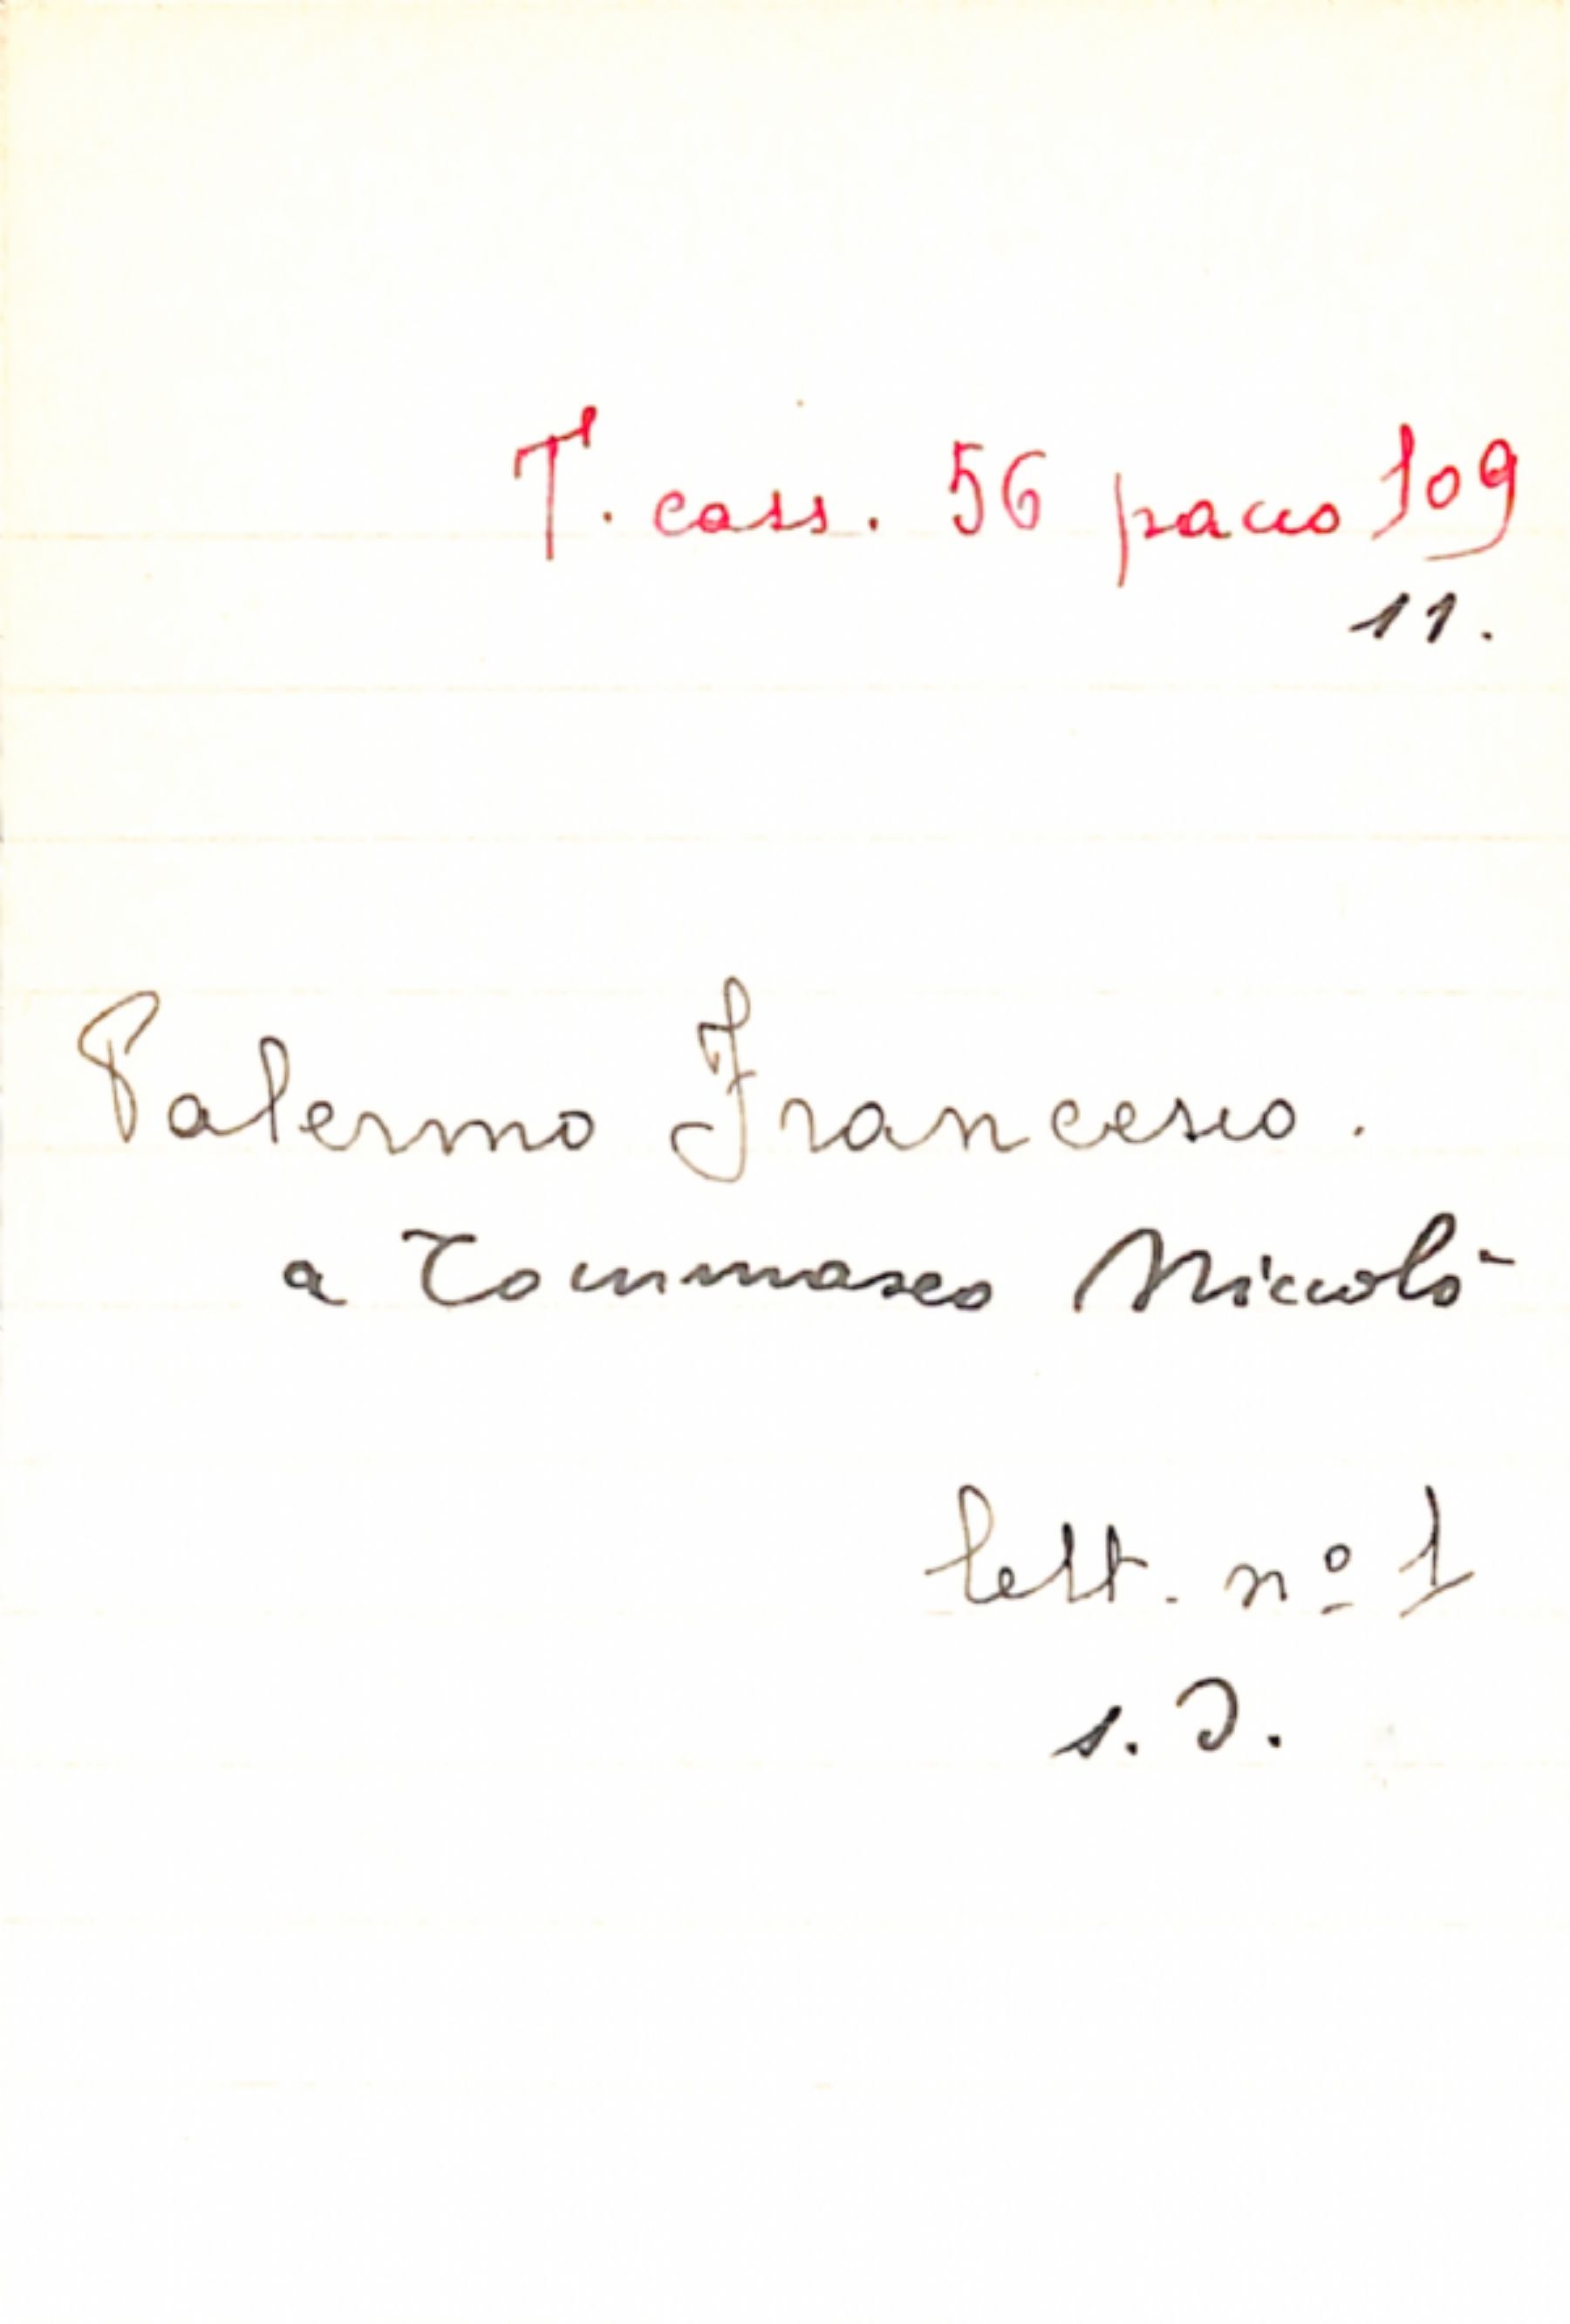 T. cass. 56 pacco 109
11.
Palermo Francesco.
a Tommaseo Niccolò
lett. nº 1
s. d.